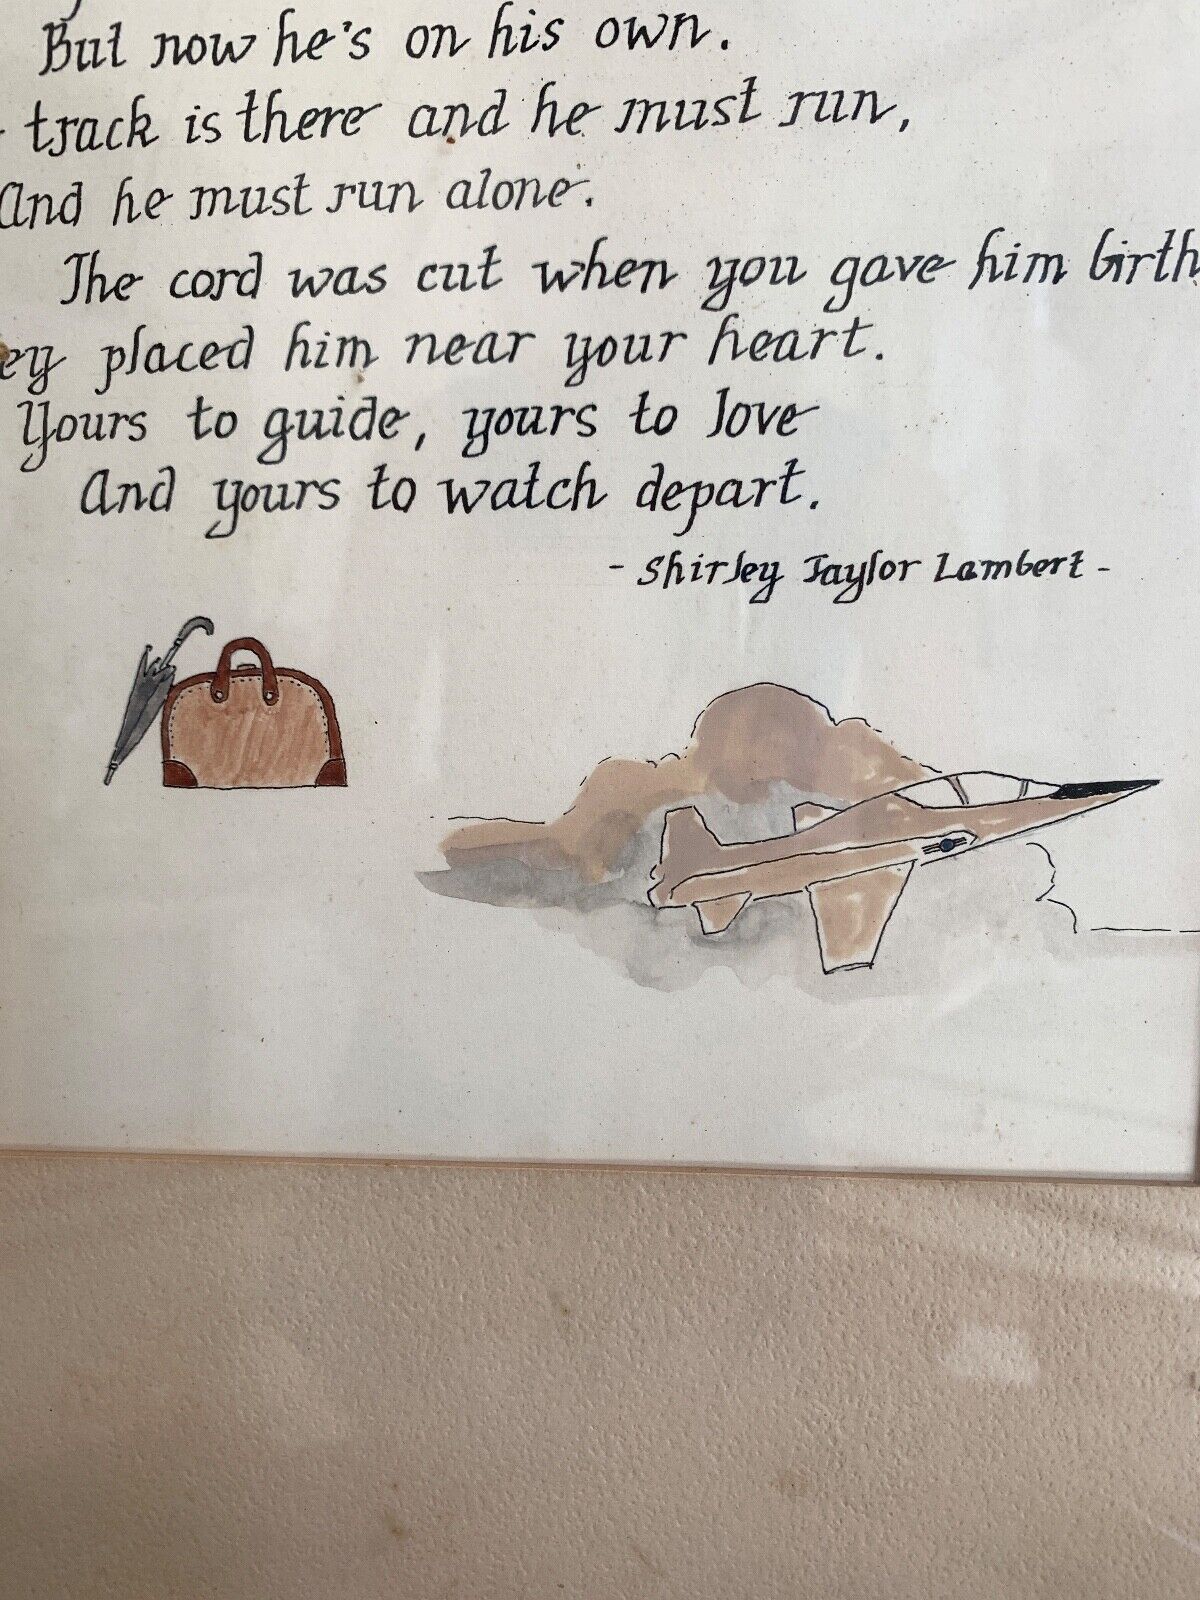 But now he's on his own.
track is there and he must run,
And he must run alone.
The cord was cut when you gave him birth
ey placed him near your heart.
Yours to guide, yours to love
And yours to watch depart.
- Shirley Taylor Lambert -